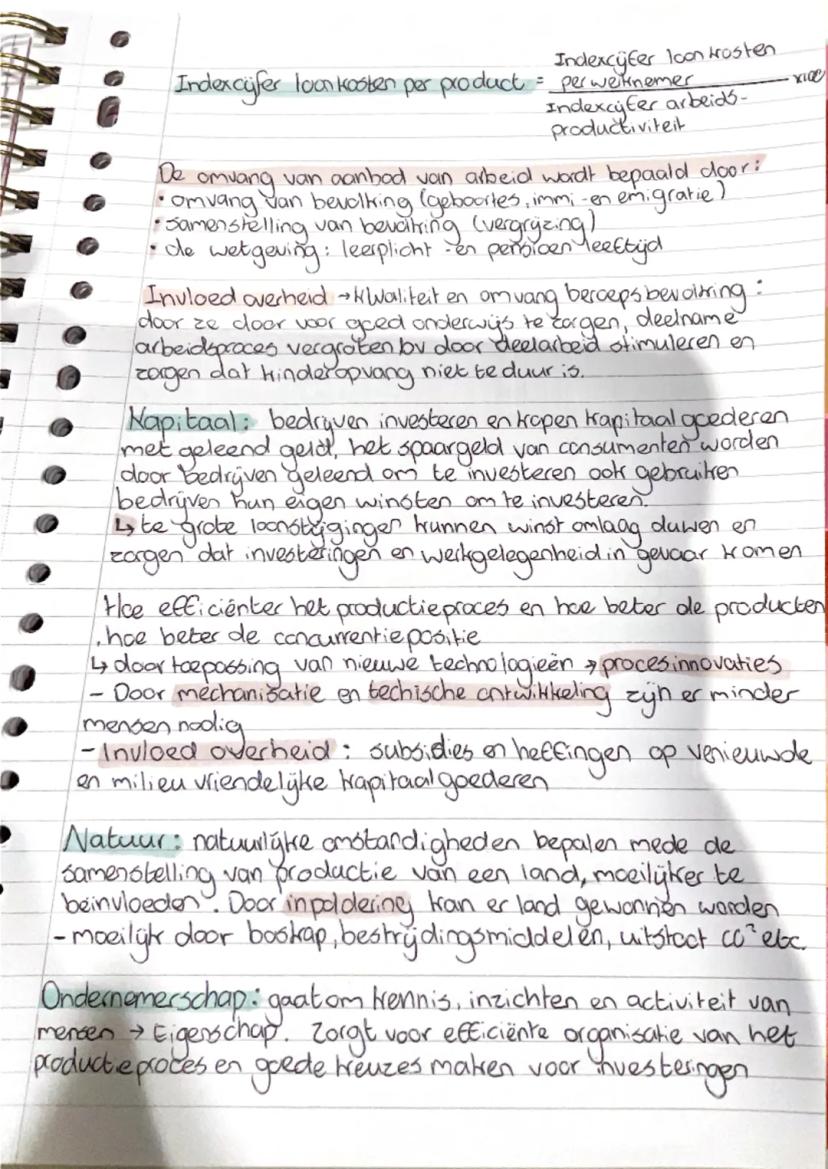 Indexcijfer loonkosten per product = Indexcijfer loonkosten
per werknemer x100
Indexcijfer arbeids-
productiviteit
De omvang van aanbod van arbeid wordt bepaald door:
• omvang van bevolking (geboortes, immi- en emigratie)
• samenstelling van bevolking (vergrijzing)
• de wetgeving: leerplicht - en pensioen leeftijd
Invloed overheid → kwaliteit en omvang beroepsbevolking:
door ze door voor goed onderwijs te zorgen, deelname
arbeidsproces vergroten bv door deelarbeid stimuleren en
zorgen dat kinderopvang niet te duur is.
Kapitaal: bedrijven investeren en kopen kapitaalgoederen
met geleend geld, het spaargeld van consumenten worden
door bedrijven geleend om te investeren ook gebruiken
bedrijven hun eigen winsten om te investeren.
↳ te grote loonstijgingen kunnen winst omlaag duwen en
zorgen dat investeringen en werkgelegenheid in gevaar komen
Hoe efficiënter het productieproces en hoe beter de producten
, hoe beter de concurrentiepositie
↳ door toepassing van nieuwe technologieën → procesinnovaties
- Door mechanisatie en techische ontwikkeling zijn er minder
mensen nodig
- Invloed overheid: subsidies en heffingen op venieuwde
en milieuvriendelijke kapitaalgoederen
Natuur: natuurlijke omstandigheden bepalen mede de
samenstelling van productie van een land, moeilijker te
beinvloeden. Door inpoldering kan er land gewonnen worden
- moeilijk door boskap, bestrijdingsmiddelen, uitstoot CO² etc.
Ondernemerschap: gaat om kennis, inzichten en activiteit van
mensen → Eigenschap. Zorgt voor efficiënte organisatie van het
productieproces en goede keuzes maken voor investeringen